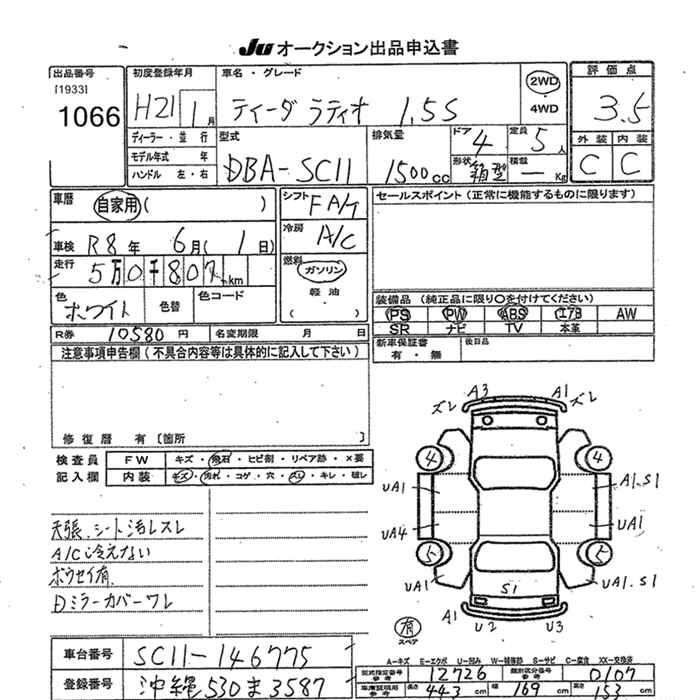 JU オークション出品申込書
出品番号
[1933]
1066
初度登録年月
H21 1月
車名・グレード
ティーダ ラティオ 1.5S
2WD
・
4WD
評価点
3.5
外装 内装
C C
ディーラー・並行
モデル年式 年
ハンドル 左・右
型式
DBA-SC11
排気量
1500cc
ドア 4
定員 5人
形状 箱型
積載 — Kg
車歴 自家用( )
車検 R8年 6月( 1日)
走行 5万0千807km
色 ホワイト 色替 色コード
シフト FA/T
冷房 A/C
燃料 ガソリン
軽油
( )
セールスポイント(正常に機能するものに限ります)
装備品(純正品に限り○を付けてください)
PS PW ABS エアB AW
SR ナビ TV 本革
R券 10580円 名変期限 月 日
新車保証書 有・無 後日品
注意事項申告欄(不具合内容等は具体的に記入して下さい)
修復歴 有〔箇所 〕
検査員 FW キズ・飛石・ヒビ割・リペア跡・×要
記入欄 内装 キズ・汚れ・コゲ・穴・スレ・キレ・破レ
天張、シート汚レスレ
A/C冷えない
ボウセイ有
Dミラーカバーワレ
A3 A1
ズレ ズレ
4 4
UA1 A1.S1
UA4 UA1
5 5
UA1 S1 UA1.S1
A1 U2 U3
有
スペア
車台番号 SC11-146775
登録番号 沖縄530ま3587
A-キズ E-エクボ U-凹み W-補修跡 S-サビ C-腐食 XX-交換済
型式指定番号 参考 12726 類別区分番号 参考 0107
車庫証明用 参考 長さ 443cm 幅 169cm 高さ 153cm